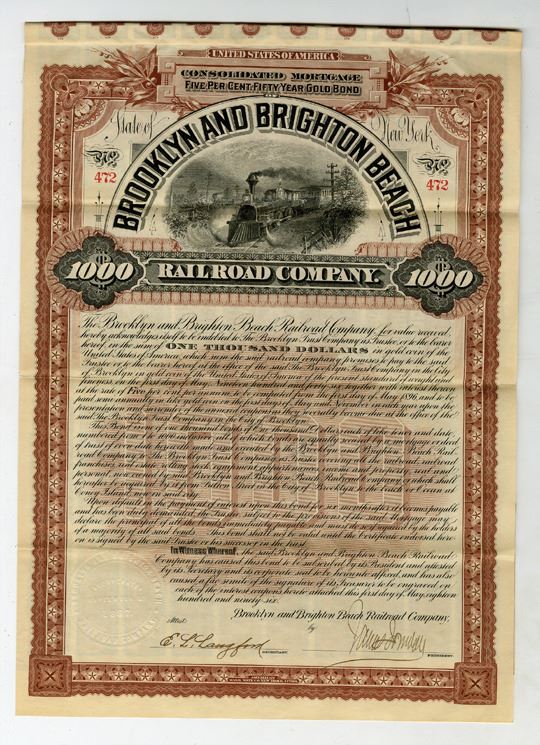 UNITED STATES OF AMERICA
CONSOLIDATED MORTGAGE
FIVE PER CENT. FIFTY YEAR GOLD BOND
State of New York
BROOKLYN AND BRIGHTON BEACH
No 472
No 472
$1000 RAILROAD COMPANY. $1000
The Brooklyn and Brighton Beach Railroad Company, for value received,
hereby acknowledges itself to be indebted to The Brooklyn Trust Company as Trustee, or to the bearer
hereof, in the sum of ONE THOUSAND DOLLARS in gold coin of the
United States of America, which sum the said railroad company promises to pay to the said
Trustee or to the bearer hereof at the office of the said The Brooklyn Trust Company in the City
of Brooklyn in gold coin of the United States of America of the present standard of weight and
fineness, on the first day of May, Nineteen hundred and forty six, together with interest thereon
at the rate of Five per cent per annum to be computed from the first day of May 1896 and to be
paid semi annually in like gold coin on the first day of May and November in each year upon the
presentation and surrender of the annexed coupons as they severally become due at the office of the
said The Brooklyn Trust Company in the City of Brooklyn.
This Bond is one of one thousand bonds of One thousand Dollars each of like tenor and date
numbered from 1 to 1000 inclusive, all of which bonds are equally secured by a mortgage or deed
of trust of even date herewith made and executed by the Brooklyn and Brighton Beach Rail-
road Company to the Brooklyn Trust Company as Trustee covering all the railroad, railroad
franchises, real estate, rolling stock, equipment, appurtenances, income and property, real and
personal, now owned by the said Brooklyn and Brighton Beach Railroad Company, or which shall
hereafter be acquired by it from Atlantic Avenue in the City of Brooklyn to the beach or Ocean at
Coney Island, now in said city.
Upon default in the payment of interest upon this bond for six months after it becomes payable
and has been duly demanded, the Trustee, subject to the provisions of the said Mortgage may
declare the principal of all the bonds immediately payable and must do so if required by the holders
of a majority of all said bonds. This bond shall not be valid until the certificate endorsed here-
on is signed by the said Trustee or its successor in the said trust.
In Witness Whereof, the said Brooklyn and Brighton Beach Railroad
Company has caused this bond to be subscribed by its President and attested
by its Secretary and its corporate seal to be hereunto affixed, and has also
caused a fac simile of the signature of its Treasurer to be engraved on
each of the interest coupons hereto attached this first day of May, eighteen
hundred and ninety six.
Brooklyn and Brighton Beach Railroad Company,
Attest by
E. L. Langford
SECRETARY. PRESIDENT.